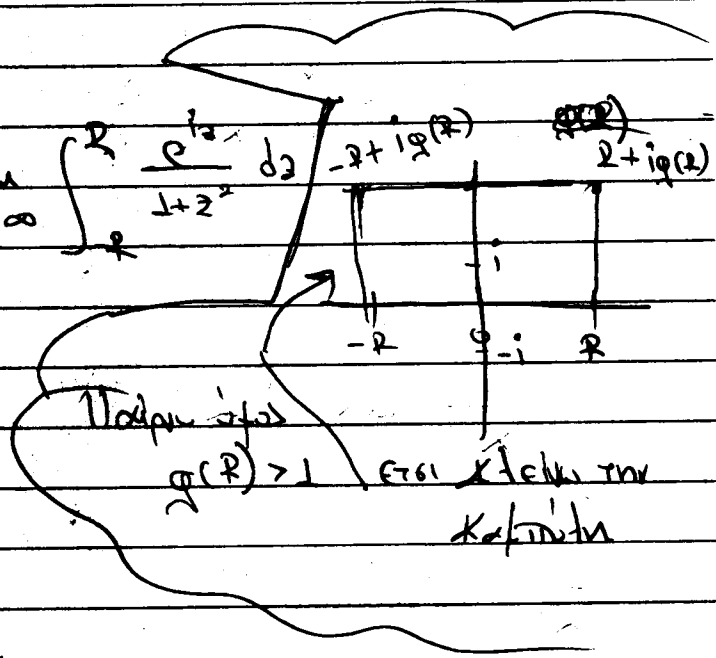 ∞ ∫_{-R}^{R} e^{iz} / (1+z²) dz
-R+iφ(R)
R+iφ(R)
i
-R 0 -i R
Παίρνω ύψος
φ(R) > 1 έτσι κλείνω την
καμπύλη